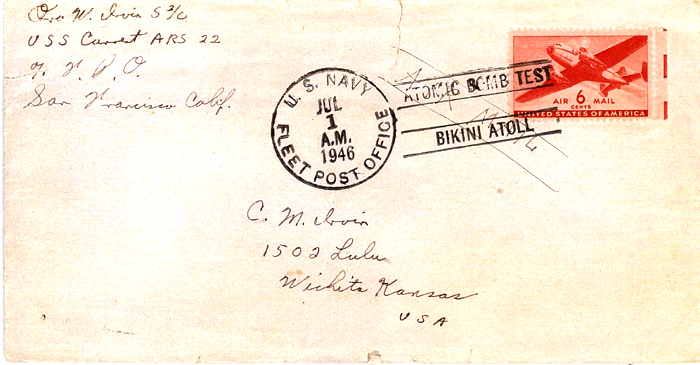 Ora W. Irvin S 2/c
USS Current ARS 22
F. P. O.
San Francisco Calif.
U. S. NAVY
JUL
1
A.M.
1946
FLEET POST OFFICE
ATOMIC BOMB TEST
BIKINI ATOLL
AIR 6 MAIL
CENTS
UNITED STATES OF AMERICA
C. M. Irvin
1502 Lulu
Wichita Kansas
USA